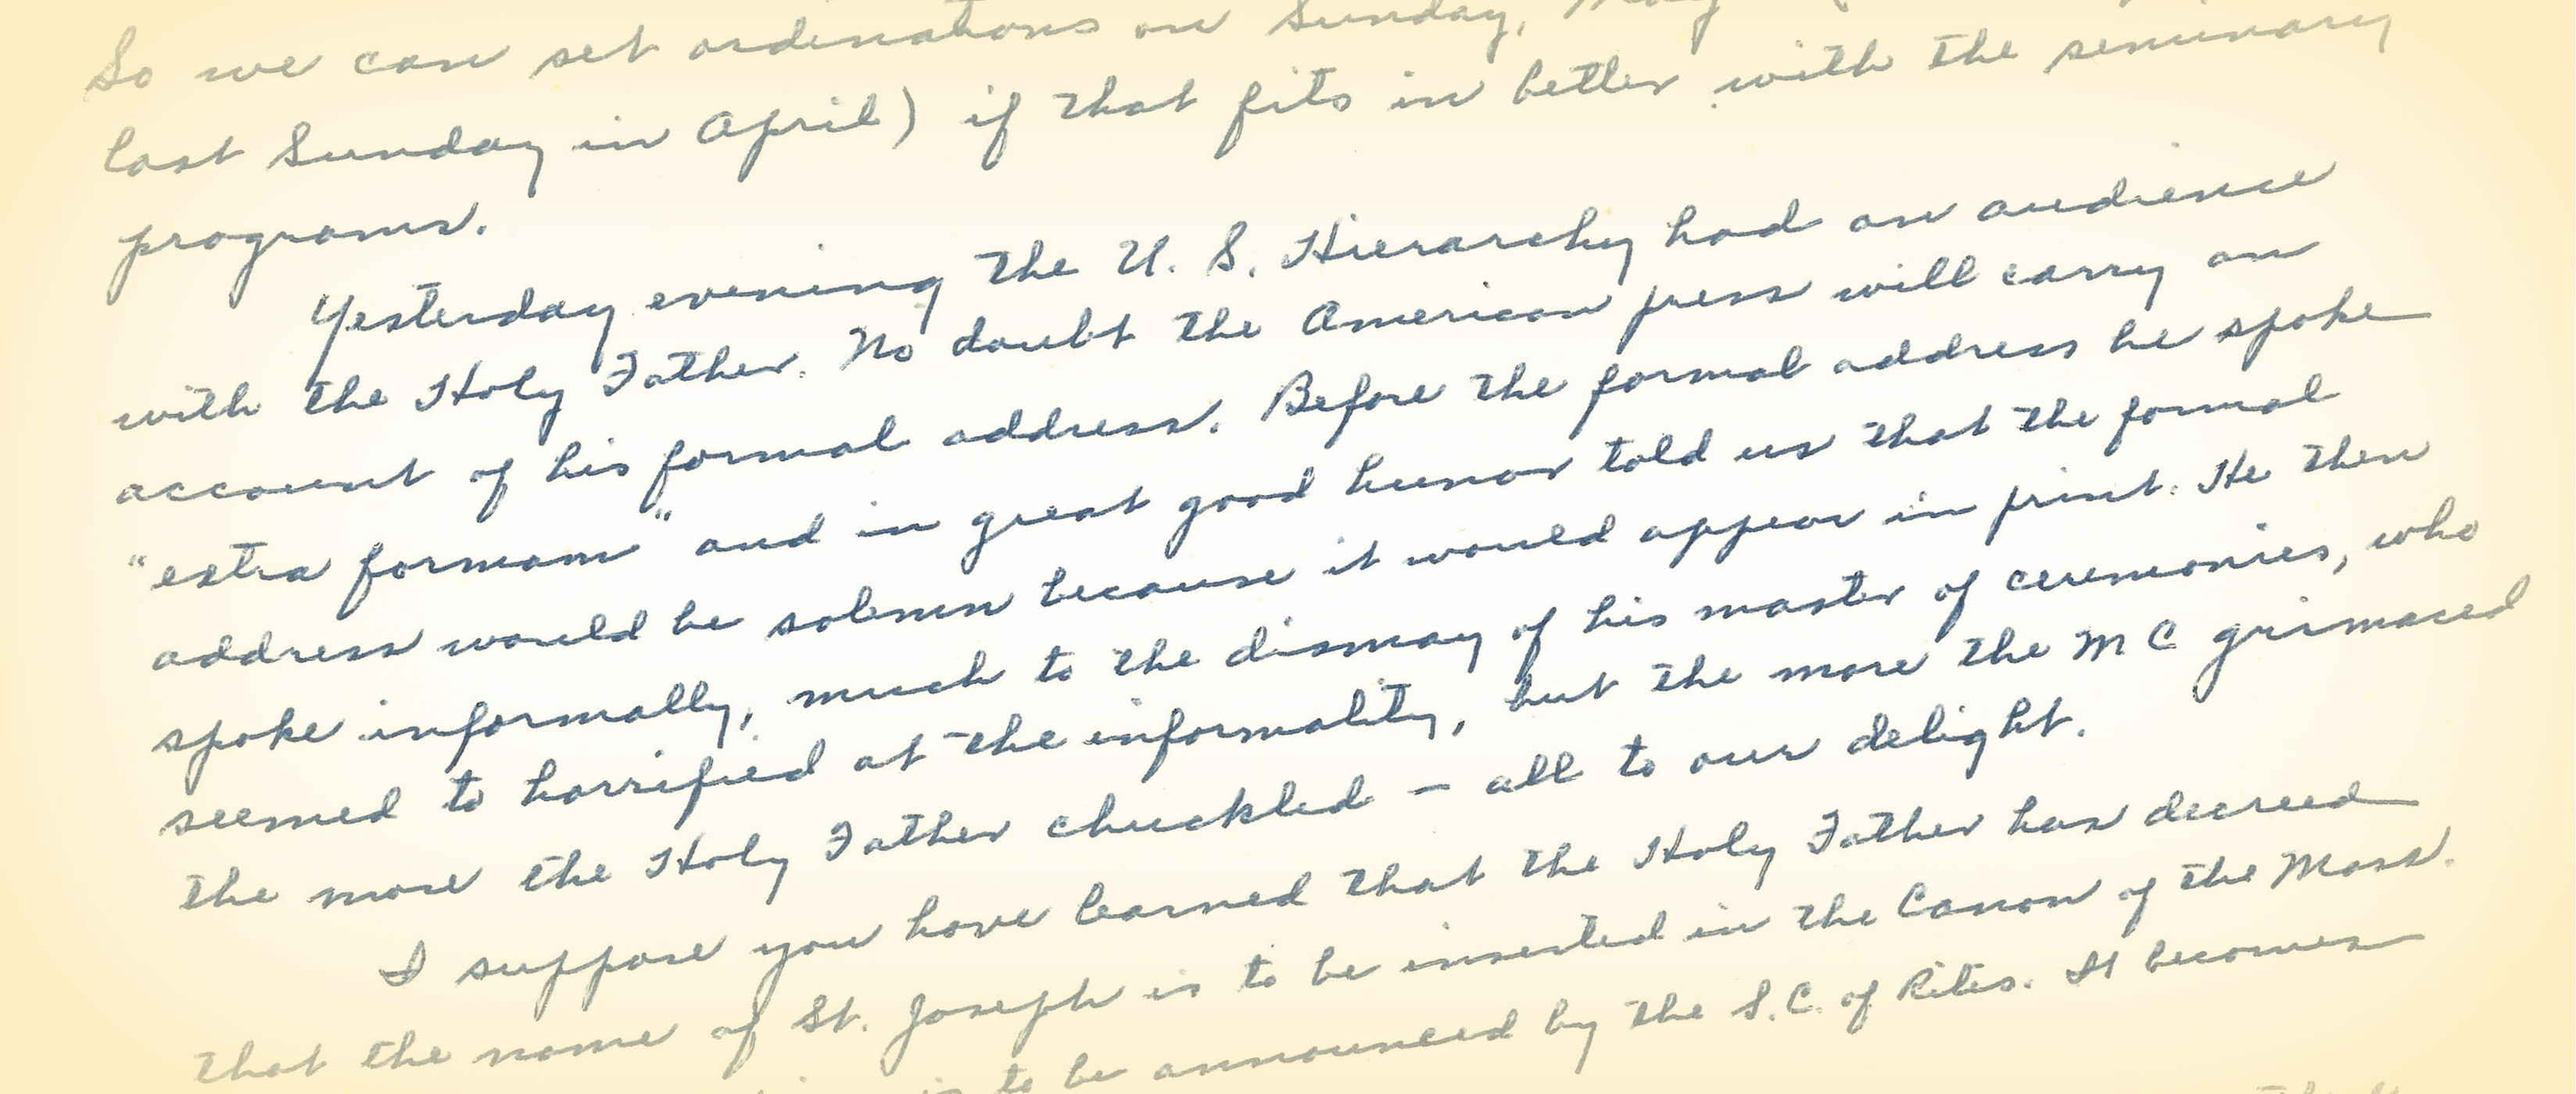 So we can set ordinations on Sunday, May
last Sunday in April) if that fits in better with the seminary
programs.
Yesterday evening the U. S. Hierarchy had an audience
with the Holy Father. No doubt the American press will carry an
account of his formal address. Before the formal address he spoke
"extra formam" and in great good humor told us that the formal
address would be solemn because it would appear in print. He then
spoke informally, much to the dismay of his master of ceremonies, who
seemed to horrified at the informality, but the more the MC grimaced
the more the Holy Father chuckled – all to our delight.
I suppose you have learned that the Holy Father has decreed
that the name of St. Joseph is to be inserted in the Canon of the Mass.
is to be announced by the S.C. of Rites. It becomes